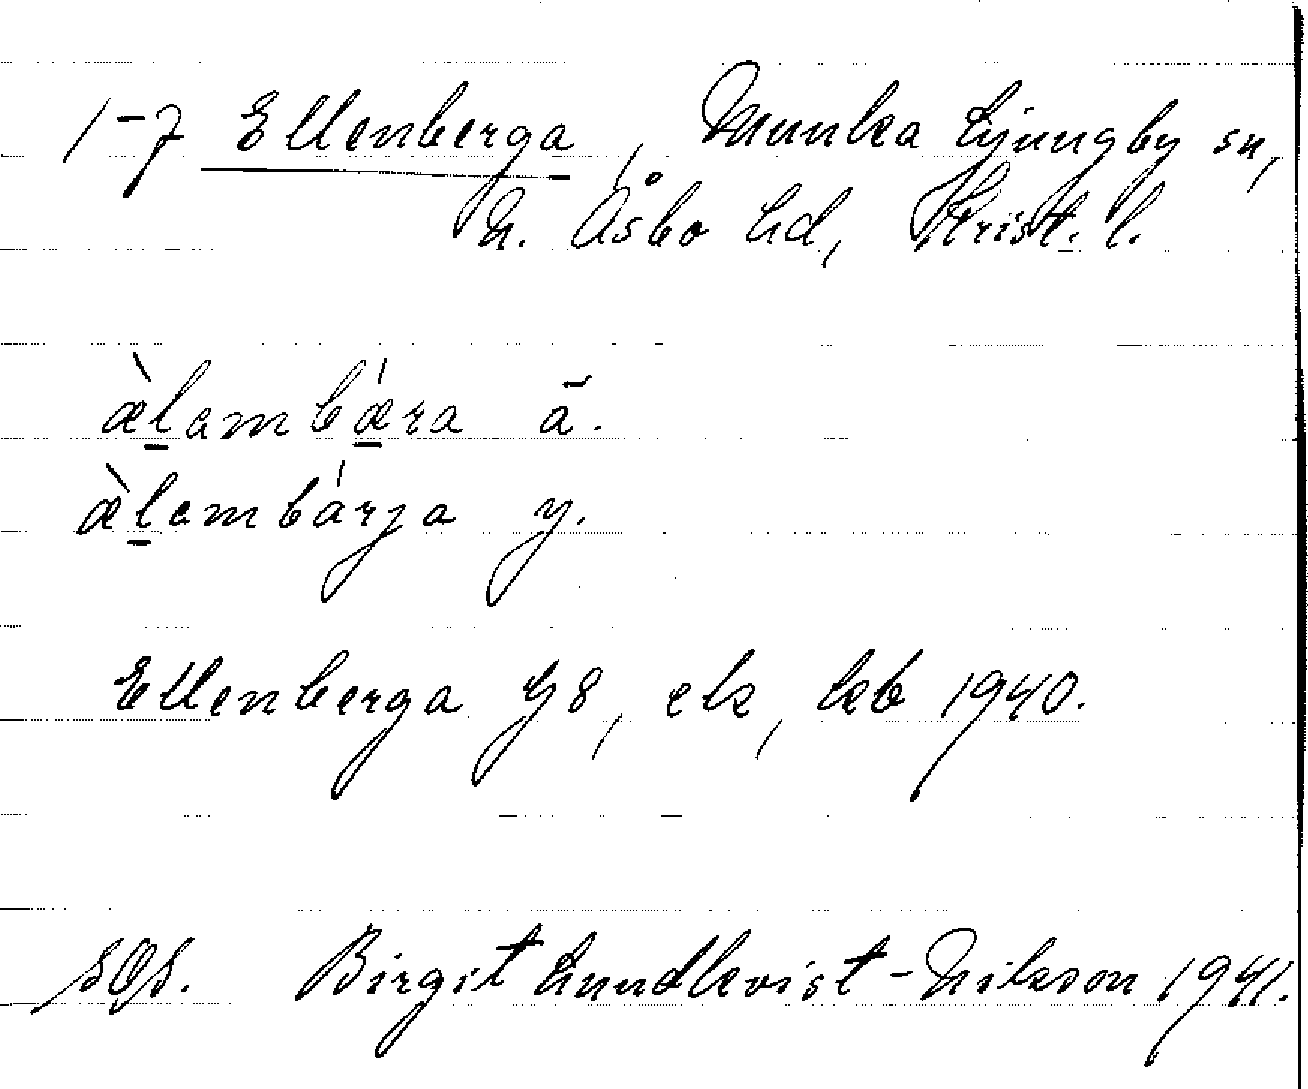 1-7 Ellenberga, Munka Ljungby sn,
N. Åsbo hd, Krist. l.
æ̀l̲ambǽ̲ra ā.
æ̀l̲ambárja y.
Ellenberga Gg8, elz, kb 1940.
SOS. Birgit Lundkvist-Nilsson 1941.